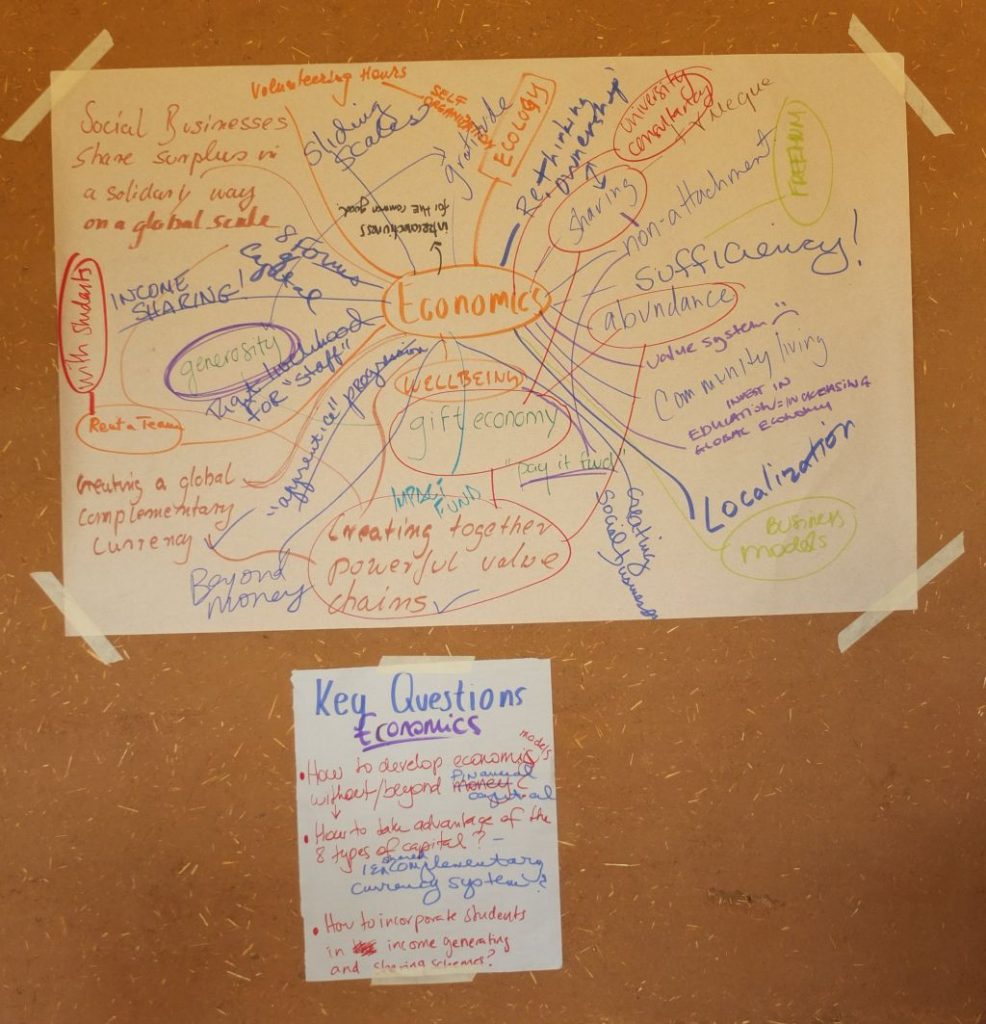 Volunteering Hours
Social Businesses
share surplus in
a solidary way
on a global scale
Sliding
Scales
SELF
ORGANIZATION
gratitude
ECOLOGY
Re.thinking
ownership
university
consultancy
sharing
non-attachment
FREEMIUM
for the common good.
Economics
sufficiency!
abundance
value system
Community living
INVEST IN
EDUCATION=INCREASING
GLOBAL ECONOMY
Localization
Business
models
with students
INCOME
SHARING!
8 Forms
generosity
Right livelihood
FOR "Staff"
Rent a Team
"apprentice" programm
WELLBEING
gift economy
"pay it fwd"
IMPACT
FUND
Creating
Social business
Creating a global
complementary
currency
Beyond
Money
Creating together
powerful value
chains
Key Questions
Economics
• How to develop economic models
without/beyond money financial capital?
• How to take advantage of the
8 types of capital? –
shared
complementary
currency system?
• How to incorporate students
in income generating
and sharing schemes?